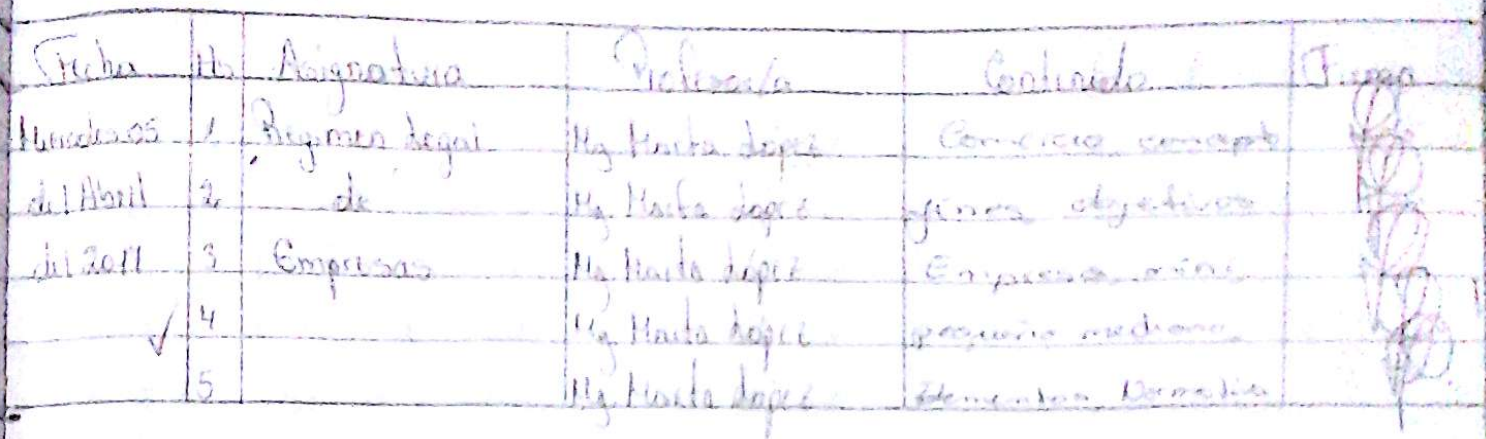 Fecha Hs Asignatura Profesor/a Contenido Firma
Miercoles 05 1 Regimen Legal Mg Marta López Comercio concepto
del Abril 2 de Mg Marta López objetivos
del 2017 3 Empresas Mg Marta López Empresa mini
✓ 4 Mg Marta López pequeña mediana
5 Mg Marta López elementos Normativa